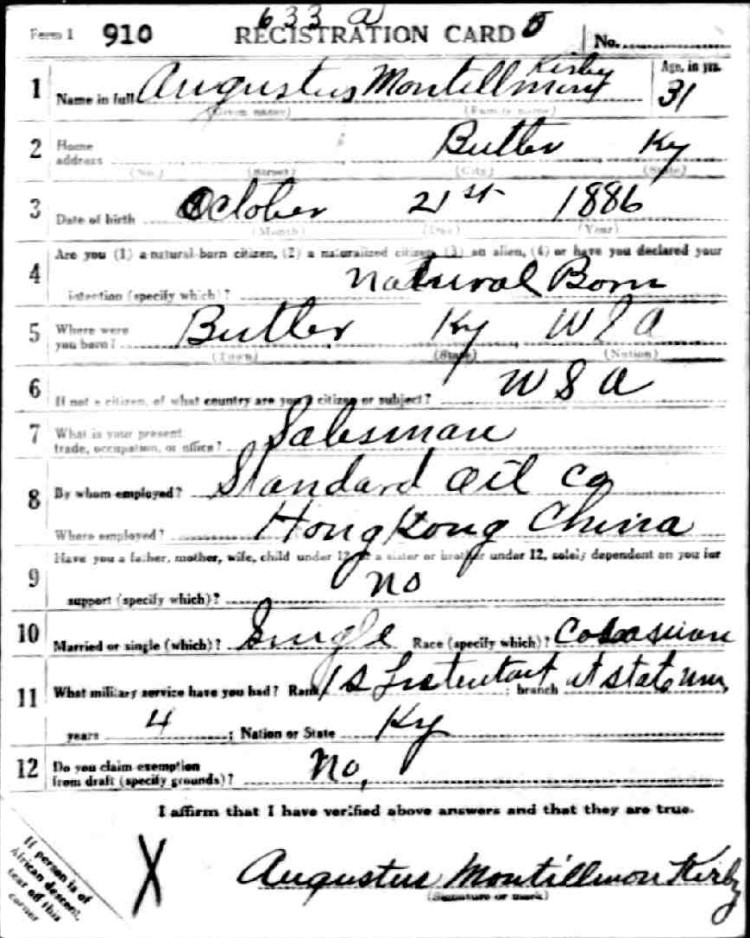 633 a
Form 1 910 REGISTRATION CARD No.
1 Name in full Augustus Montillmon Kirby Age, in yrs. 31
(Given name) (Family name)
2 Home address Butler Ky
(No.) (Street) (City) (State)
3 Date of birth October 21st 1886
(Month) (Day) (Year)
4 Are you (1) a natural-born citizen, (2) a naturalized citizen, (3) an alien, (4) or have you declared your
intention (specify which)? Natural Born
5 Where were you born? Butler Ky U S A
(Town) (State) (Nation)
6 If not a citizen, of what country are you a citizen or subject? U S A
7 What is your present trade, occupation, or office? Salesman
8 By whom employed? Standard Oil Co
Where employed? Hong Kong China
9 Have you a father, mother, wife, child under 12, or a sister or brother under 12, solely dependent on you for
support (specify which)? no
10 Married or single (which)? Single Race (specify which)? Cocasuian
11 What military service have you had? Rank 1s Listentant ; branch at state uni,
years 4 ; Nation or State Ky
12 Do you claim exemption from draft (specify grounds)? No,
I affirm that I have verified above answers and that they are true.
If person is of
African descent,
tear off this
corner
X Augustus Montillmon Kirby
(Signature or mark)